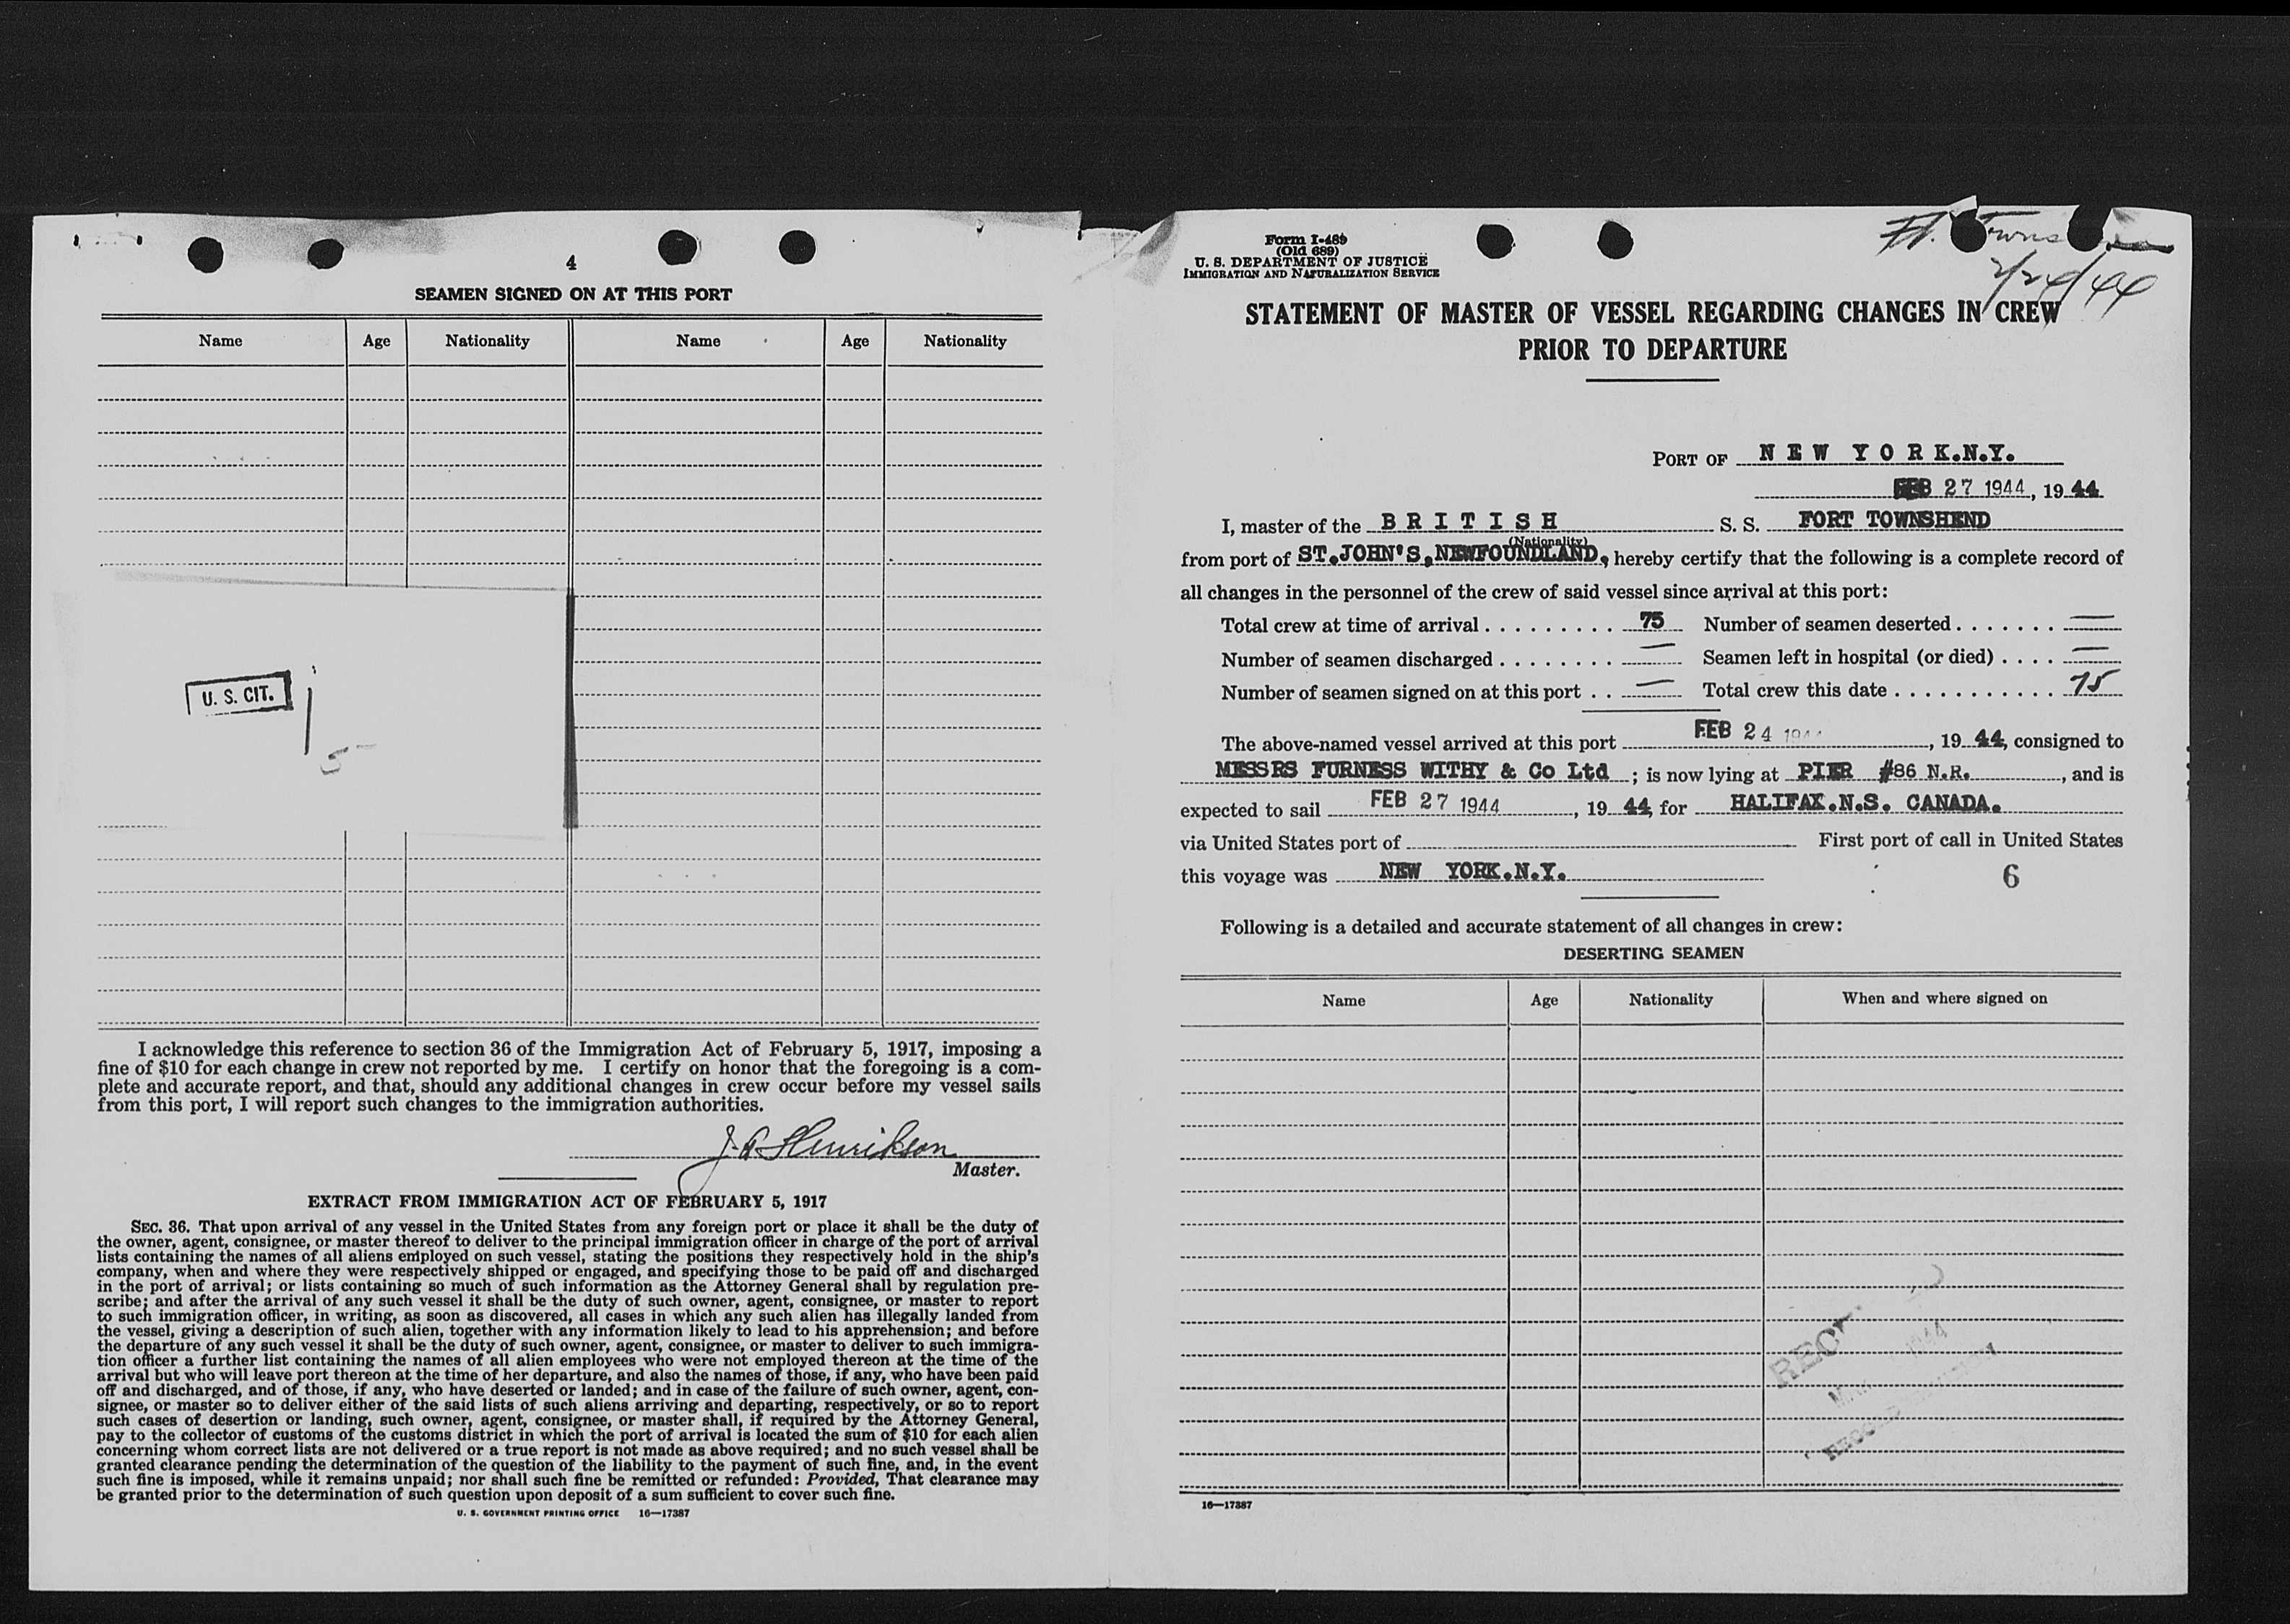 4
SEAMEN SIGNED ON AT THIS PORT
Name Age Nationality Name Age Nationality
U. S. CIT.
I acknowledge this reference to section 36 of the Immigration Act of February 5, 1917, imposing a
fine of $10 for each change in crew not reported by me. I certify on honor that the foregoing is a com-
plete and accurate report, and that, should any additional changes in crew occur before my vessel sails
from this port, I will report such changes to the immigration authorities.
J. A Henrikson
Master.
EXTRACT FROM IMMIGRATION ACT OF FEBRUARY 5, 1917
SEC. 36. That upon arrival of any vessel in the United States from any foreign port or place it shall be the duty of
the owner, agent, consignee, or master thereof to deliver to the principal immigration officer in charge of the port of arrival
lists containing the names of all aliens employed on such vessel, stating the positions they respectively hold in the ship's
company, when and where they were respectively shipped or engaged, and specifying those to be paid off and discharged
in the port of arrival; or lists containing so much of such information as the Attorney General shall by regulation pre-
scribe; and after the arrival of any such vessel it shall be the duty of such owner, agent, consignee, or master to report
to such immigration officer, in writing, as soon as discovered, all cases in which any such alien has illegally landed from
the vessel, giving a description of such alien, together with any information likely to lead to his apprehension; and before
the departure of any such vessel it shall be the duty of such owner, agent, consignee, or master to deliver to such immigra-
tion officer a further list containing the names of all alien employees who were not employed thereon at the time of the
arrival but who will leave port thereon at the time of her departure, and also the names of those, if any, who have been paid
off and discharged, and of those, if any, who have deserted or landed; and in case of the failure of such owner, agent, con-
signee, or master so to deliver either of the said lists of such aliens arriving and departing, respectively, or so to report
such cases of desertion or landing, such owner, agent, consignee, or master shall, if required by the Attorney General,
pay to the collector of customs of the customs district in which the port of arrival is located the sum of $10 for each alien
concerning whom correct lists are not delivered or a true report is not made as above required; and no such vessel shall be
granted clearance pending the determination of the question of the liability to the payment of such fine, and, in the event
such fine is imposed, while it remains unpaid; nor shall such fine be remitted or refunded: Provided, That clearance may
be granted prior to the determination of such question upon deposit of a sum sufficient to cover such fine.
U. S. GOVERNMENT PRINTING OFFICE 16—17387
Form I-489
(Old 689)
U. S. DEPARTMENT OF JUSTICE
IMMIGRATION AND NATURALIZATION SERVICE
Ft.
2/24/44
STATEMENT OF MASTER OF VESSEL REGARDING CHANGES IN CREW
PRIOR TO DEPARTURE
PORT OF NEW YORK.N.Y.
FEB 27 1944, 19 44
I, master of the BRITISH S. S. FORT TOWNSHEND
(Nationality)
from port of ST.JOHN'S,NEWFOUNDLAND, hereby certify that the following is a complete record of
all changes in the personnel of the crew of said vessel since arrival at this port:
Total crew at time of arrival . . . . . . . . . 75 Number of seamen deserted . . . . . . . —
Number of seamen discharged . . . . . . . . — Seamen left in hospital (or died) . . . . —
Number of seamen signed on at this port . . — Total crew this date . . . . . . . . . . . 75
The above-named vessel arrived at this port FEB 24 1944, 19 44, consigned to
MESSRS FURNESS WITHY & Co Ltd ; is now lying at PIER #86 N.R. , and is
expected to sail FEB 27 1944 , 19 44, for HALIFAX.N.S. CANADA.
via United States port of First port of call in United States
this voyage was NEW YORK.N.Y. 6
Following is a detailed and accurate statement of all changes in crew:
DESERTING SEAMEN
Name Age Nationality When and where signed on
16—17387